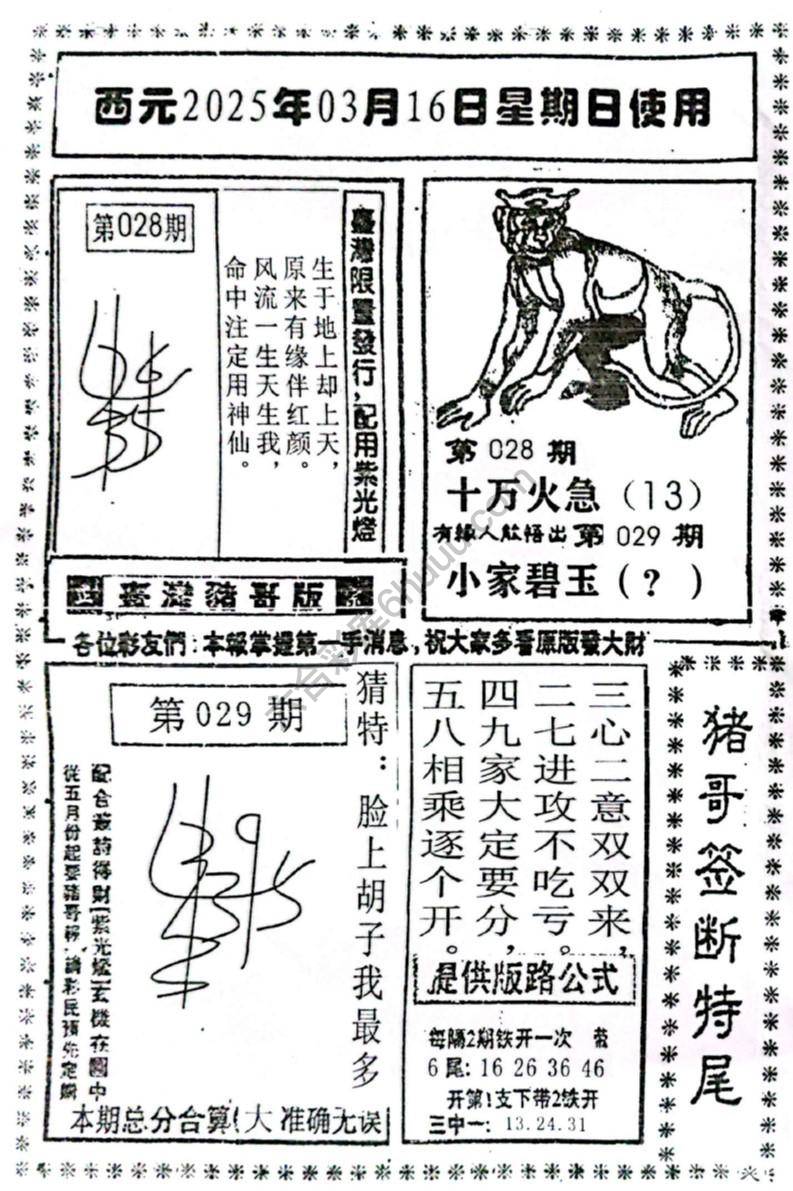 西元2025年03月16日星期日使用
第028期
生于地上却上天，
原来有缘伴红颜。
风流一生天生我，
命中注定用神仙。
臺灣限量發行，配用紫光燈
臺灣豬哥版
第028期
十万火急（13）
有緣人能悟出第029期
小家碧玉（？）
各位彩友們：本報掌握第一手消息，祝大家多看原版發大財
第029期
猜特：脸上胡子我最多
從五月份起要豬哥報，請彩民預先定購
本期总分合算（大 准确无误
三心二意双双来，
二七进攻不吃亏。
四九家大定要分，
五八相乘逐个开。
提供版路公式
每隔2期铁开一次 带
6尾：16 26 36 46
开第1支下带2铁开
三中一：13.24.31
猪哥签断特尾
六合彩库6huuu.com